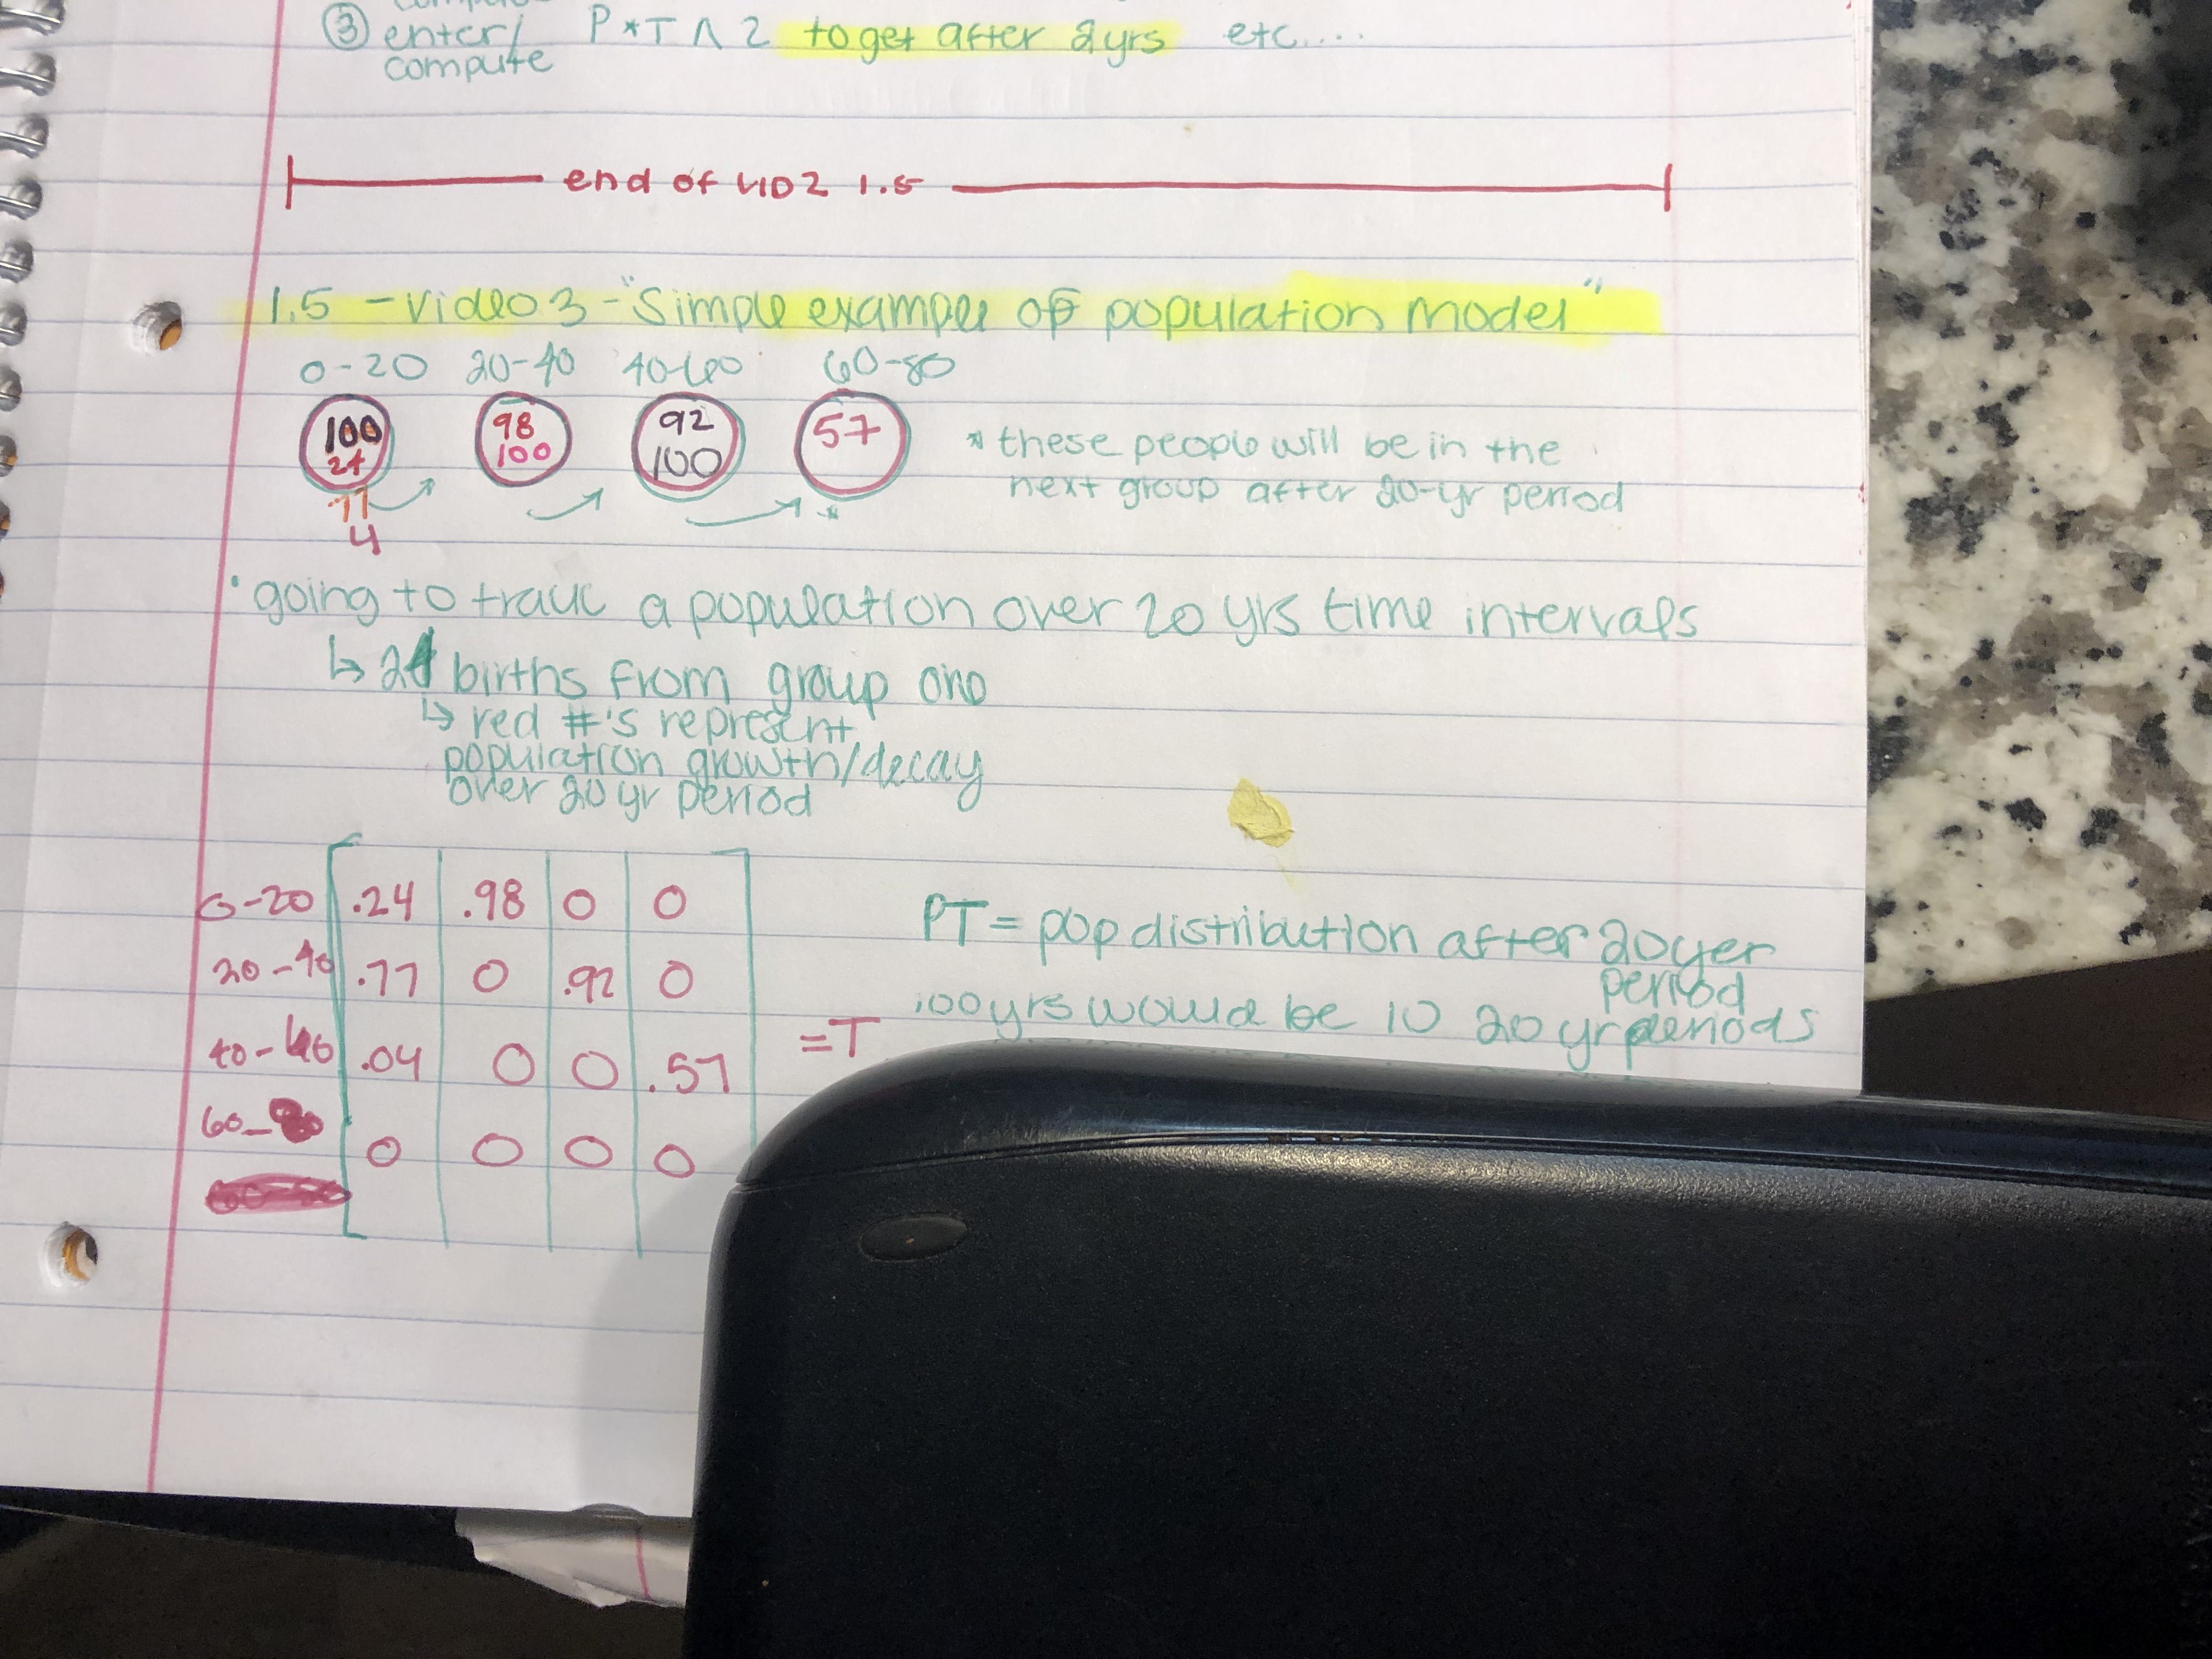 ③ enter/ P*T∧2 to get after 2yrs etc....
compute
end of VID 2 1.5
1.5 - video 3 - "Simple example of population model"
0-20 20-40 40-60 60-80
100 98 92 57
24 100 100
77
4
* these people will be in the
next group after 20-yr period
*
• going to track a population over 20 yrs time intervals
↳ 24 births from group one
↳ red #'s represent
population growth/decay
over 20 yr period
0-20 .24 .98 0 0
20-40 .77 0 .92 0
40-60 .04 0 0 .57
60-80 0 0 0 0
= T
PT = pop distribution after 20 yer
period
100 yrs would be 10 20 yr periods